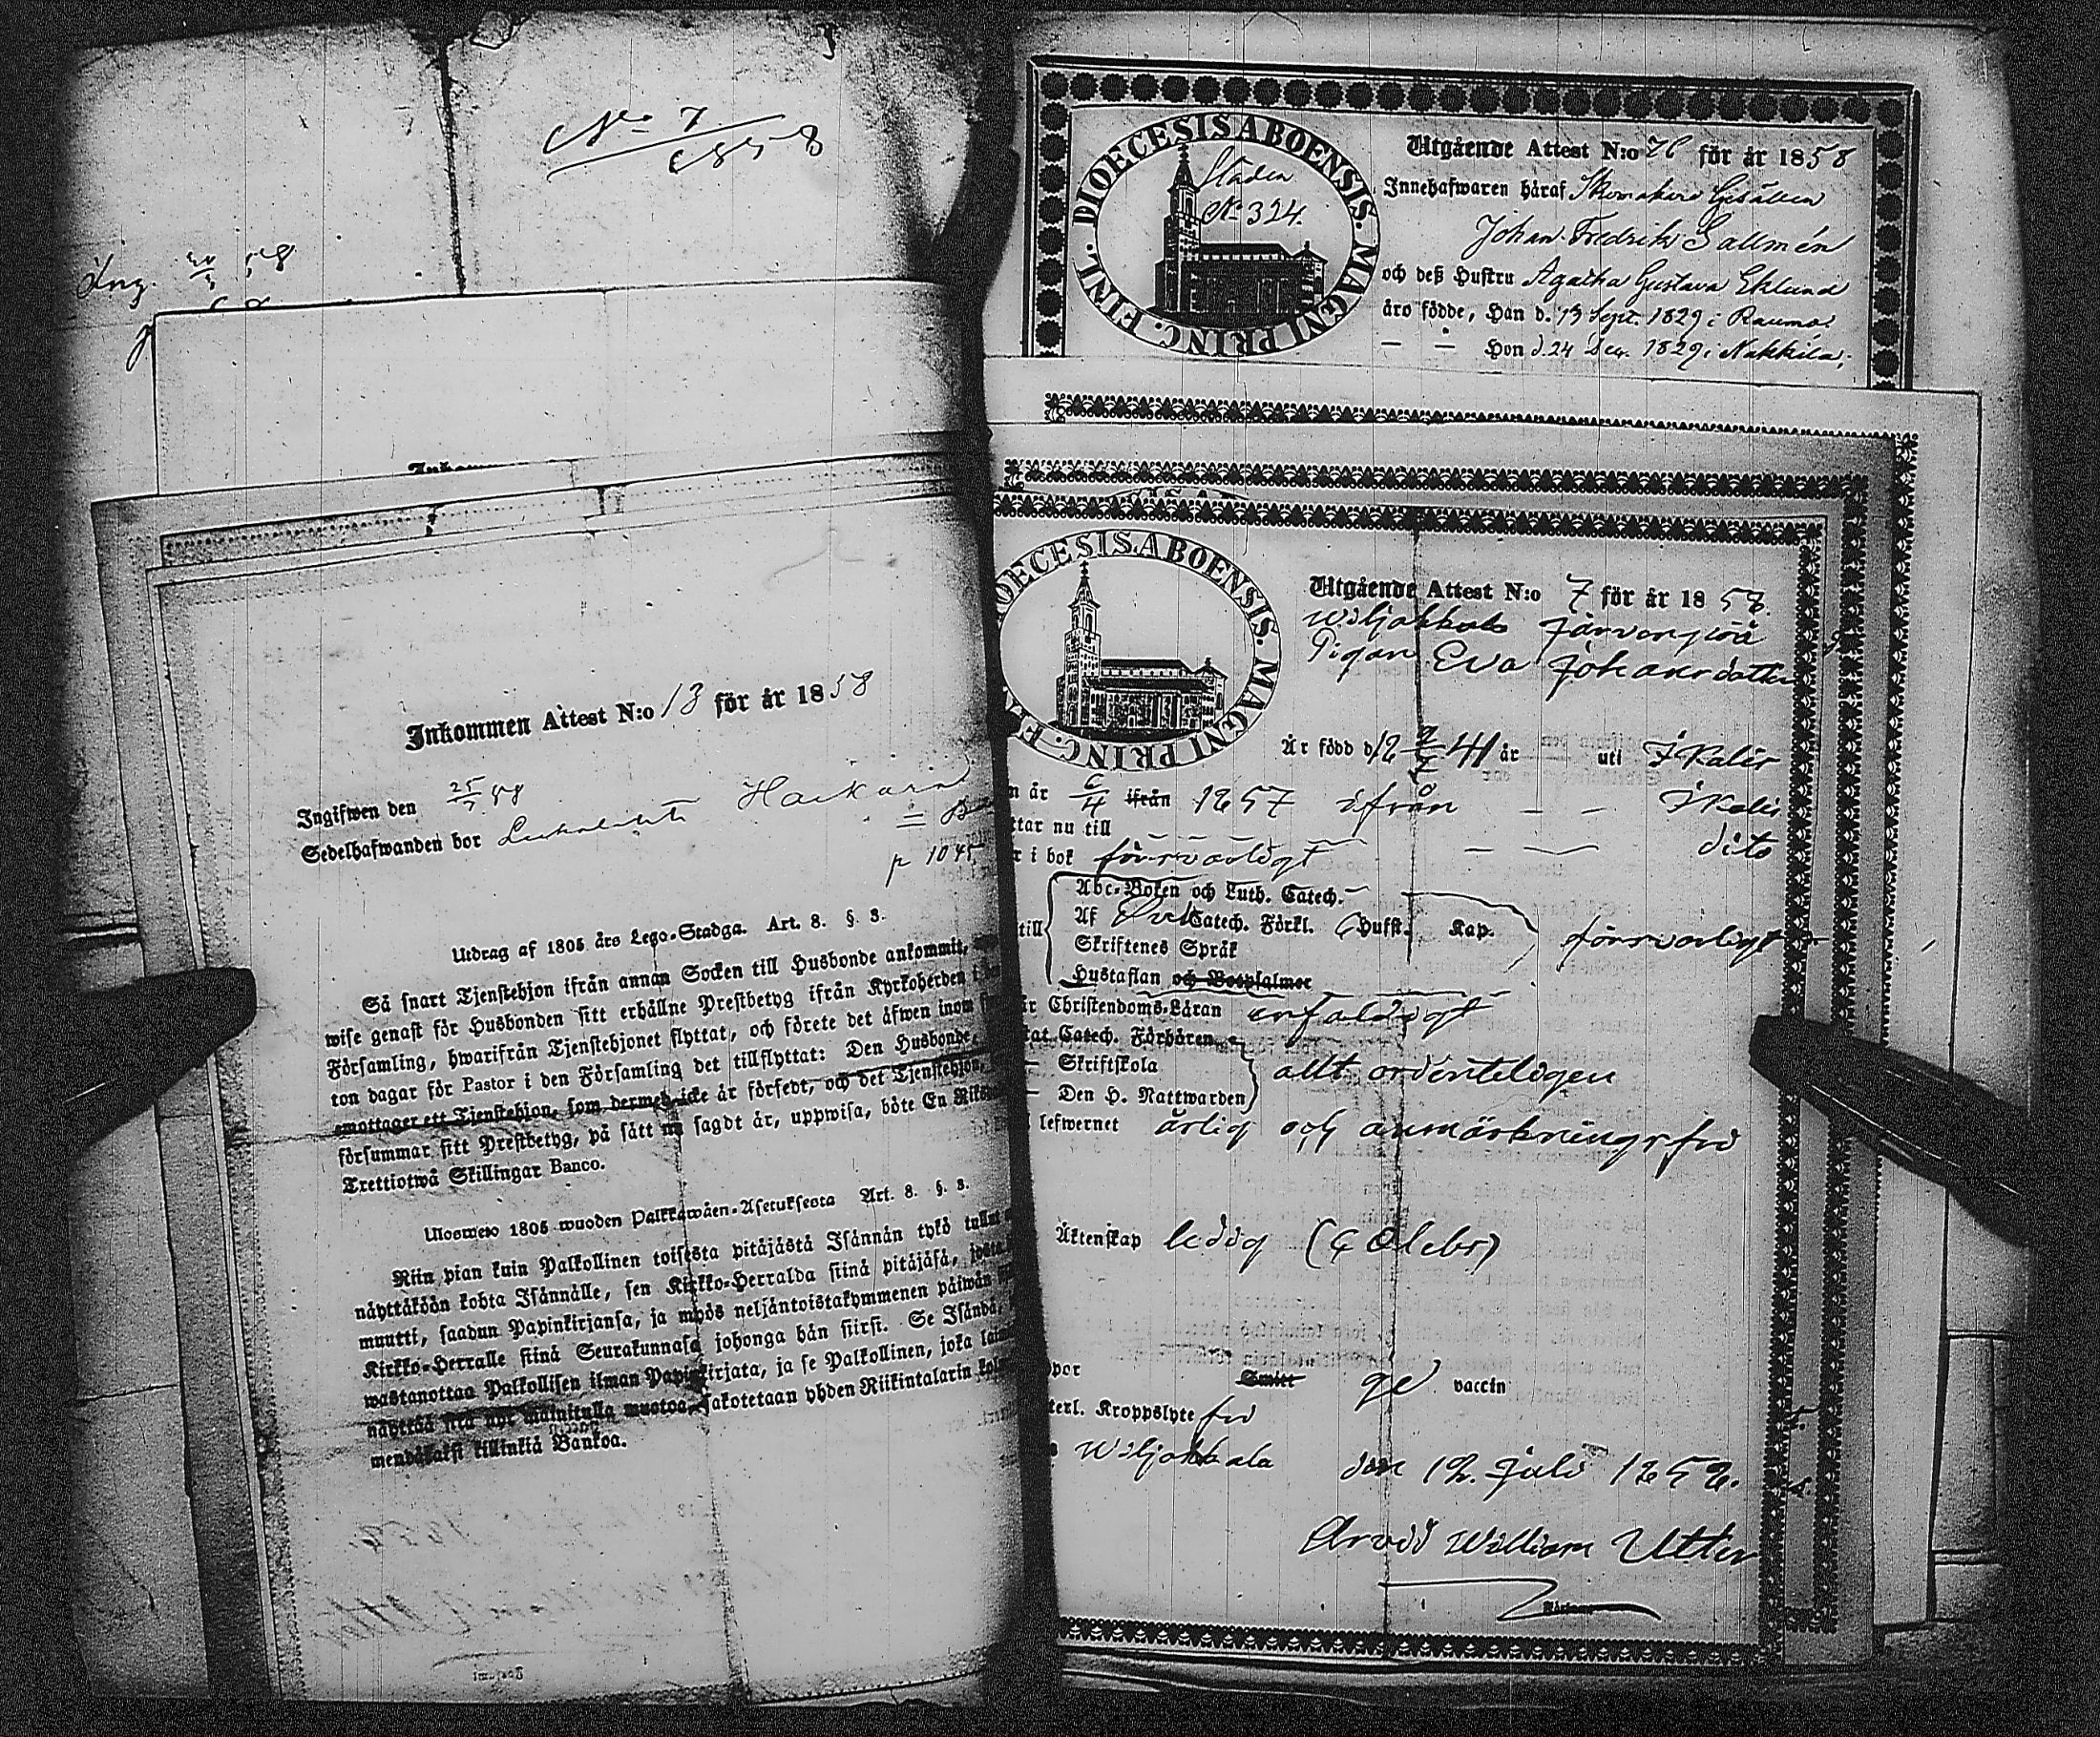 No 7
1858
Ing. 58
Inkommen Attest N:o 13 för år 1858
Ingifwen den 25/7 58
Sedelhafwanden bor
p 1045
Utdrag af 1805 års Lego-Stadga. Art. 8. §. 3.
Så snart Tjenstehjon ifrån annan Socken till Husbonde ankommit,
wise genast för Husbonden sitt erhållne Prestbetyg ifrån Kyrkoherden i
Församling, hwarifrån Tjenstehjonet flyttat, och förete det äfwen inom
ton dagar för Pastor i den Församling det tillflyttat: Den Husbonde,
emottager ett Tjenstehjon, som dermed icke är försedt, och det Tjenstehjon,
försummar sitt Prestbetyg, på sätt nu sagdt är, uppwisa, böte En Riks
Trettiotwå Skillingar Banco.
Ulosweto 1805 wuoden Palkkawäen-Asetuksesta Art. 8. §. 3.
Niin pian kuin Palkollinen toisesta pitäjästä Isännän tykö tullut
näyttäköön kohta Isännälle, sen Kirkko-Herralda siinä pitäjäsä, josta
muutti, saadun Papinkirjansa, ja myös neljäntoistakymmenen päiwän
Kirkko-Herralle siinä Seurakunnasa johonga hän siirsi. Se Isändä,
wastanottaa Palkollisen ilman Papinkirjata, ja se Palkollinen, joka
näyttää sitä nyt mainitulla muotoa, sakotetaan yhden Riikintalarin
mendäkaksi killinkiä Bankoa.
DIOECESIS ABOENSIS. MAGNI PRINC. FINL.
Staden
No 324.
Utgående Attest N:o 76 för år 1858
Innehafwaren håraf Skomakare Gesällen
Johan Fredrik Sallmén
och deß Hustru Agatha Gustava Eklund
äro födde, Han d. 13 Sept. 1829 i Raumo.
— — Hon d. 24 Dec. 1829 i Nakkila;
DIOECESIS ABOENSIS. MAGNI PRINC. F
Utgående Attest N:o 7 för år 1858.
Wiljakkala Järvenpää
Pigan Eva Johansdotter
Är född d 12 2/7 41 år uti Ikalis
n år 6/4 ifrån 1857 ifrån — — Ikalis
ttar nu till — — dito
r i bok försvarligt
Abc-Boken och Luth. Catech.
till Af Catech. Förkl. Hufst. Kap. försvarligt
Skriftenes Språk
Hustaflan och Botpsalmer
r Christendoms-Läran enfaldigt
tat Catech. Förhören
— Skriftskola allt ordenteligen
— Den H. Nattwarden
lefwernet ärlig och anmärkningsfri
Äktenskap ledig (Coelebs)
ppor Smitt ge vaccin
terl. Kroppslyte fri
Wiljakkala den 12. Juli 1858.
Arvid William Utter